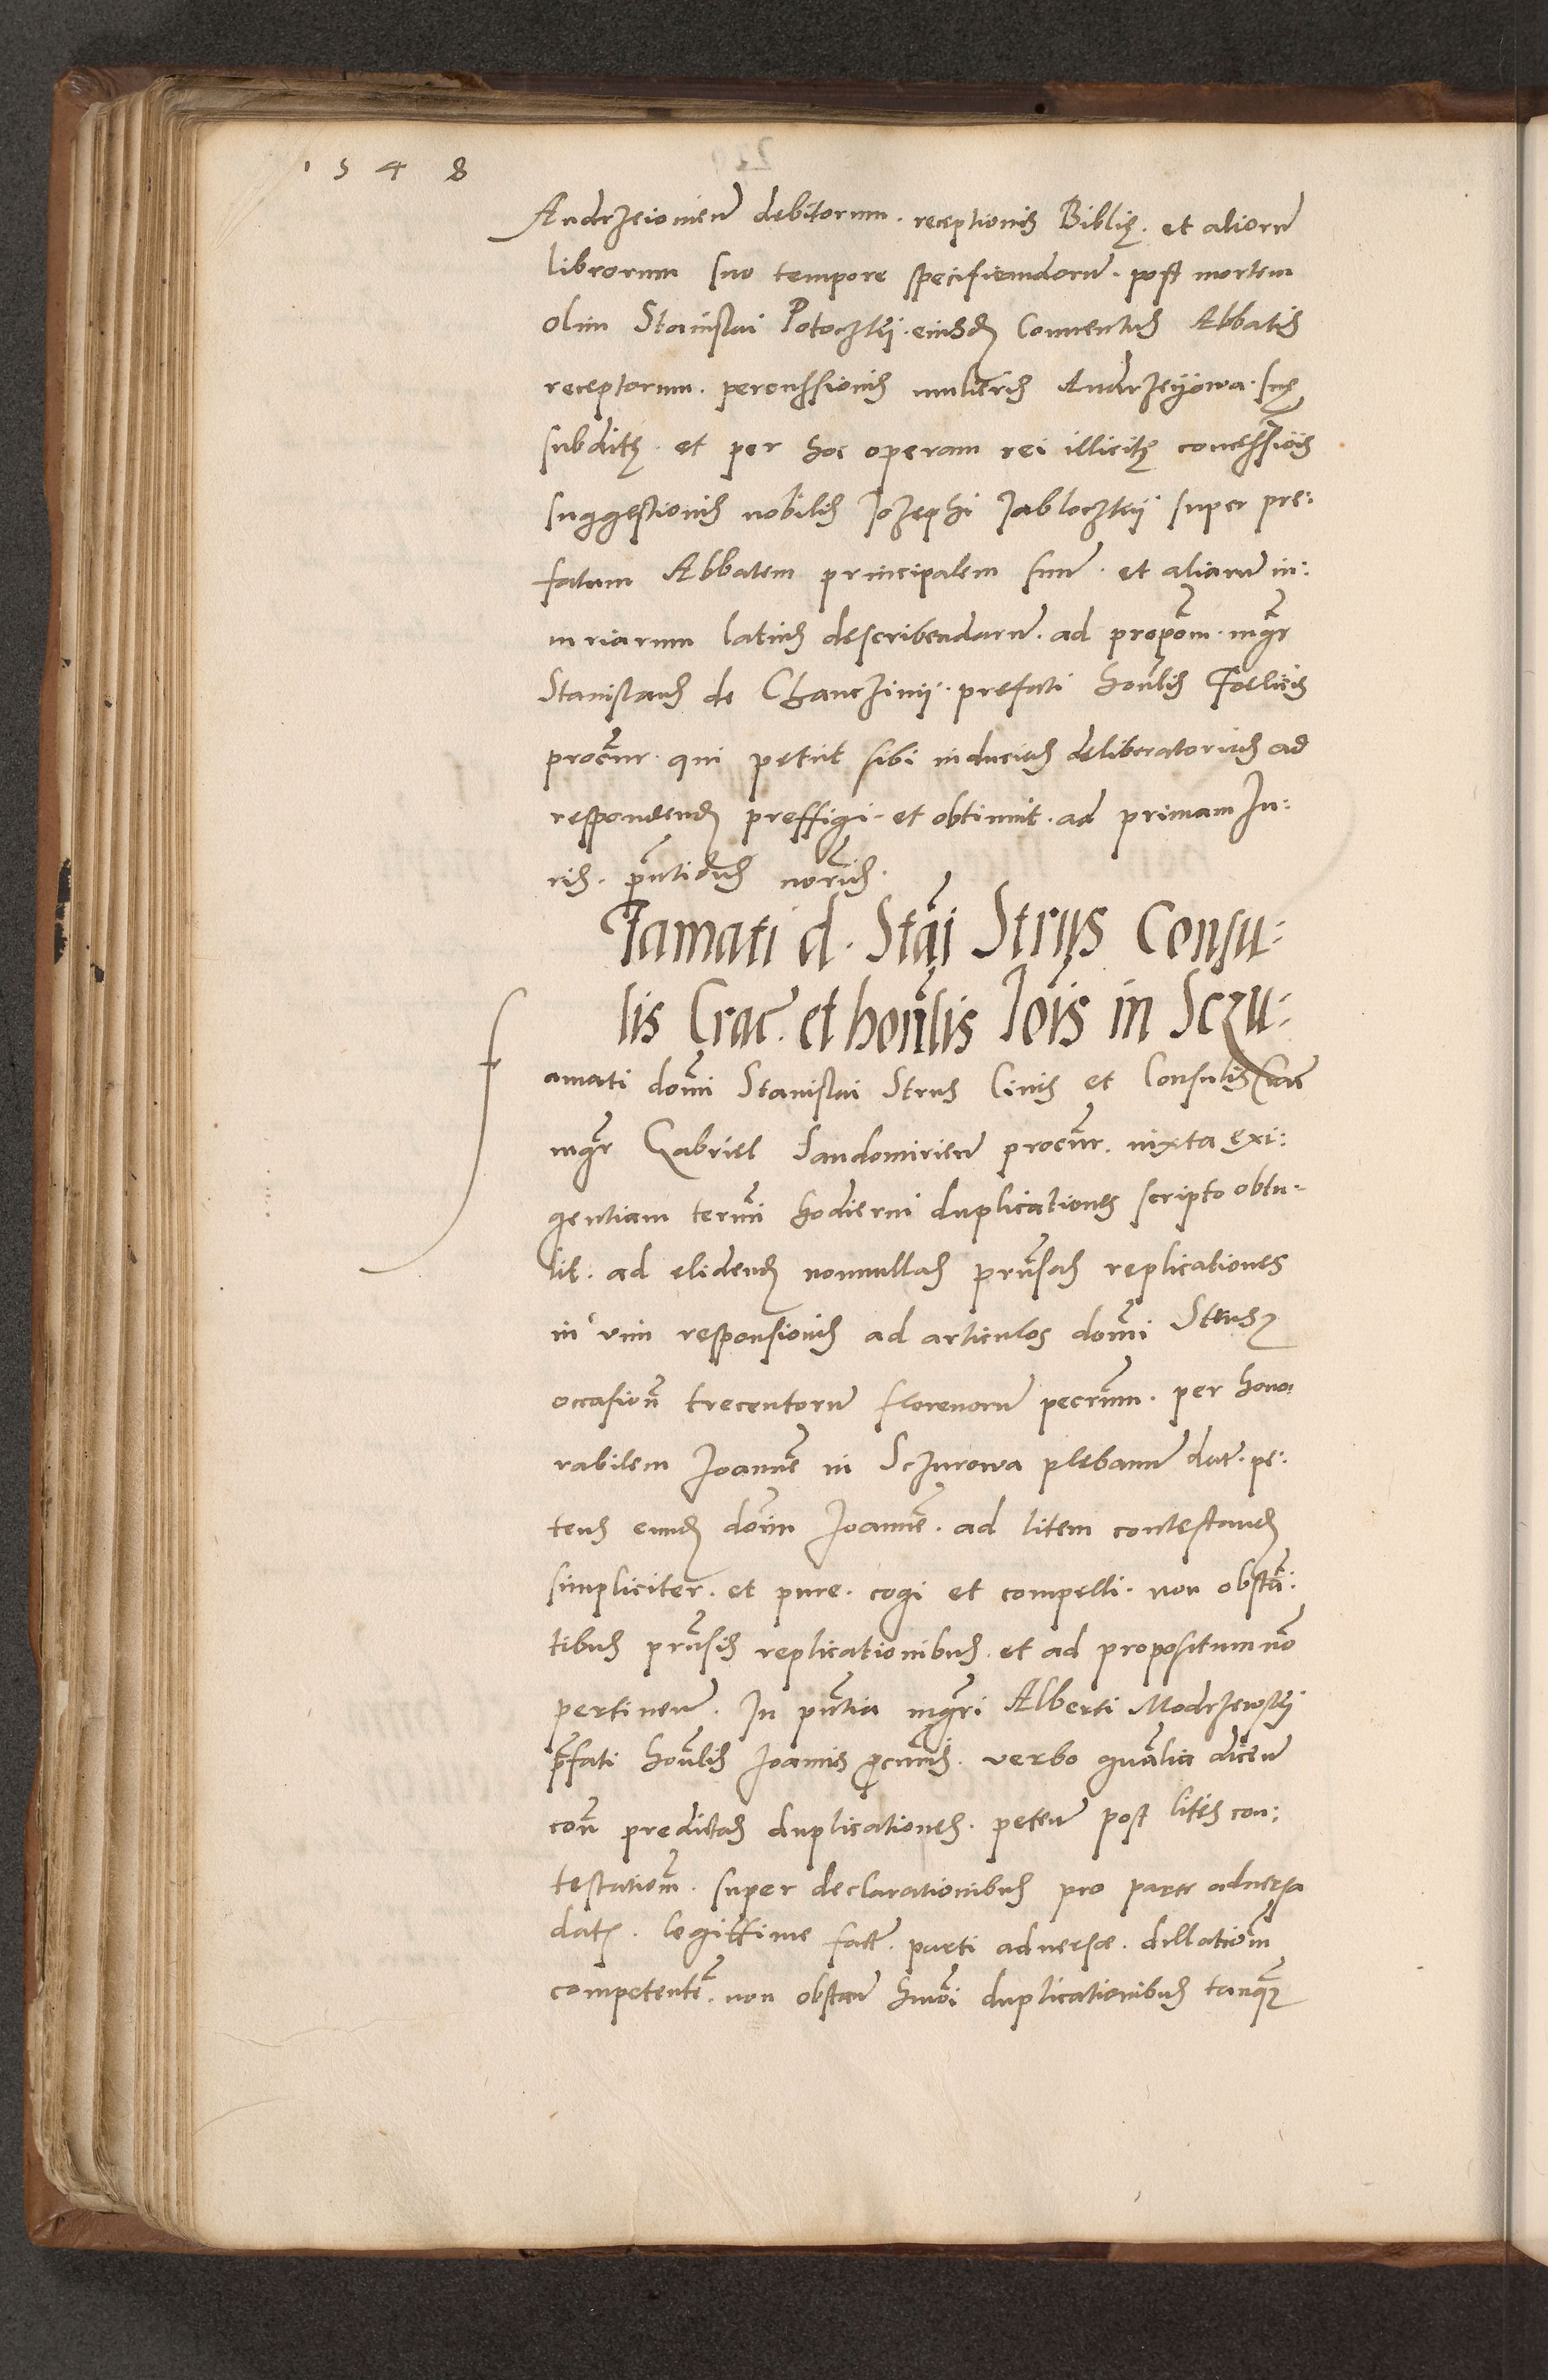 1548
Andrzeiovien̄ debitorum. receptionis Biblię. et aliorū
librorum suo tempore specificandorū. post mortem
olim Stanislai Potoczkÿ. eiusd Conventus Abbatis
receptorum. percussionis mulieris Andrzeÿowa. suę
subditę. et per hoc operam rei illicitę concessiois
suggestionis nobilis Jozephi Jabloczkÿ super pre:
fatum Abbatem principalem suū. et aliarū in:
iuriarum latius describendarū. ad propōm. mgr
Stanislaus de Chanczinÿ. prefati honlis Foelicis
procur. qui petiit sibi inducias deliberatorias ad
respondend preffigi. et obtinuit. ad primam Ju:
ris. pntibus notariis.
Famati d. Stāi Strus Consu:
lis Crac̄. et honlis Iōis in Sczu:
Famati domi Stanislai Strus Civis et Consulis Crac̄
mgr Gabriel Sandomirien̄ procur. iuxta exi:
gentiam termi hodierni duplicationes scripto obtu:
lit. ad elidend nonnullas prensas replicationes
in vim responsionis ad articulos domi Strusz
occasion̄ trecentorū florenorū pecrum. per hono:
rabilem Joannē in Sczurowa plebanū dat̄. pe:
tens eund dom̄ Joannē. ad litem contestand
simpliciter. et pure. cogi et compelli. non obstā:
tibus prensis replicationibus. et ad propositum nō
pertinen̄. In pn̄tia mgri Alberti Modrzewskÿ
p̄fati honlis Joannis procuris. verbo gn̄alia dicen̄
con̄ predictas duplicationes. peten̄ post litis con:
testationm. super declarationibus pro parte adversa
datis. legittime fact̄. parti adversæ. dillationm
competentē. non obstan̄ hmōi duplicationibus tanqz